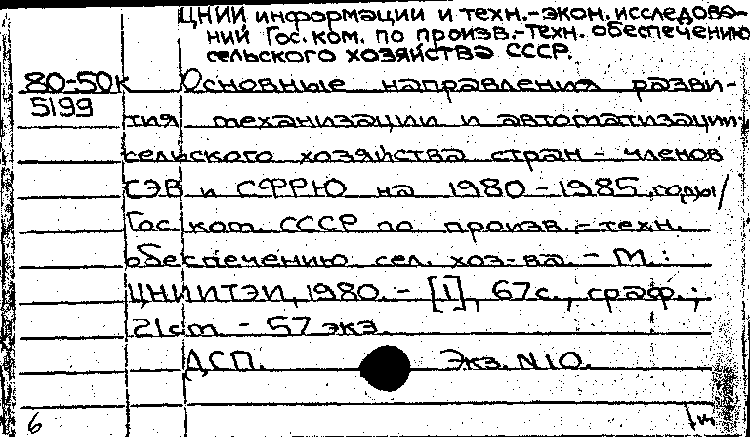 ЦНИИ информации и техн.-экон. исследова-
ний Гос. ком. по произв.-техн. обеспечению
сельского хозяйства СССР.
80-50к Основные направления разви-
5199
тия механизации и автоматизации
сельского хозяйства стран - членов
СЭВ и СФРЮ на 1980-1985 годы/
Гос. ком. СССР по произв.-техн.
обеспечению сел. хоз-ва. - М.:
ЦНИИТЭИ, 1980. - [1], 67 с., граф.;
21 cm - 57 экз.
ДСП. Экз. N 10.
6